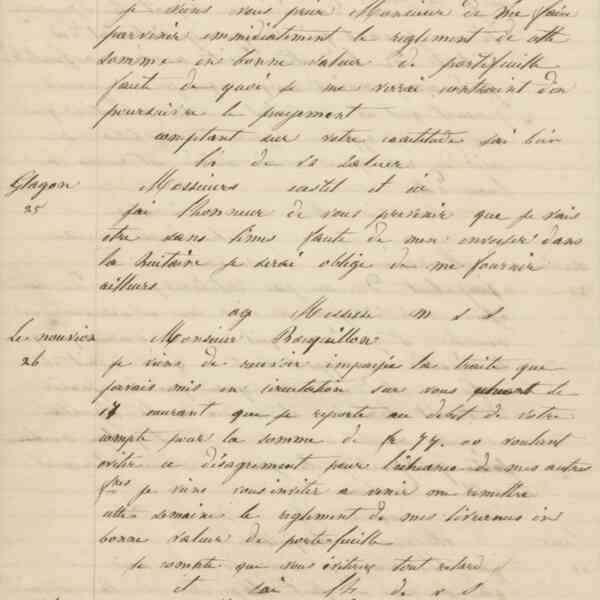 je viens vous prier Monsieur de me faire
parvenir immédiatement le reglement de cette
somme en bonne valeur de portefeuille
faute de quoi je me verrai contraint d'en
poursuivre le payement
comptant sur votre exactitude j'ai bien
de vs saluer
Glageon Messieurs castel et cie
25 j'ai l'honneur de vous prevenir que je vais
etre sans limes faute de men envoyer dans
la huitaine je serai obligé de me fournir
ailleurs
ag Messrs m s s
Le nouvion Monsieur Roquillon
26 je viens de recevoir impayée la traite que
j'avais mis en circulation sur vous le
17 courant que je reporte au debit de votre
compte pour la somme de fr 77. 00 voulant
eviter ce désagrement pour l'échéance de mes autres
fres je viens vous inviter a venir me remettre
cette semaine le reglement de mes livraisons en
bonne valeur de porte-feuille
Je compte que vous éviterez tout retard
et j'ai l'h de v s